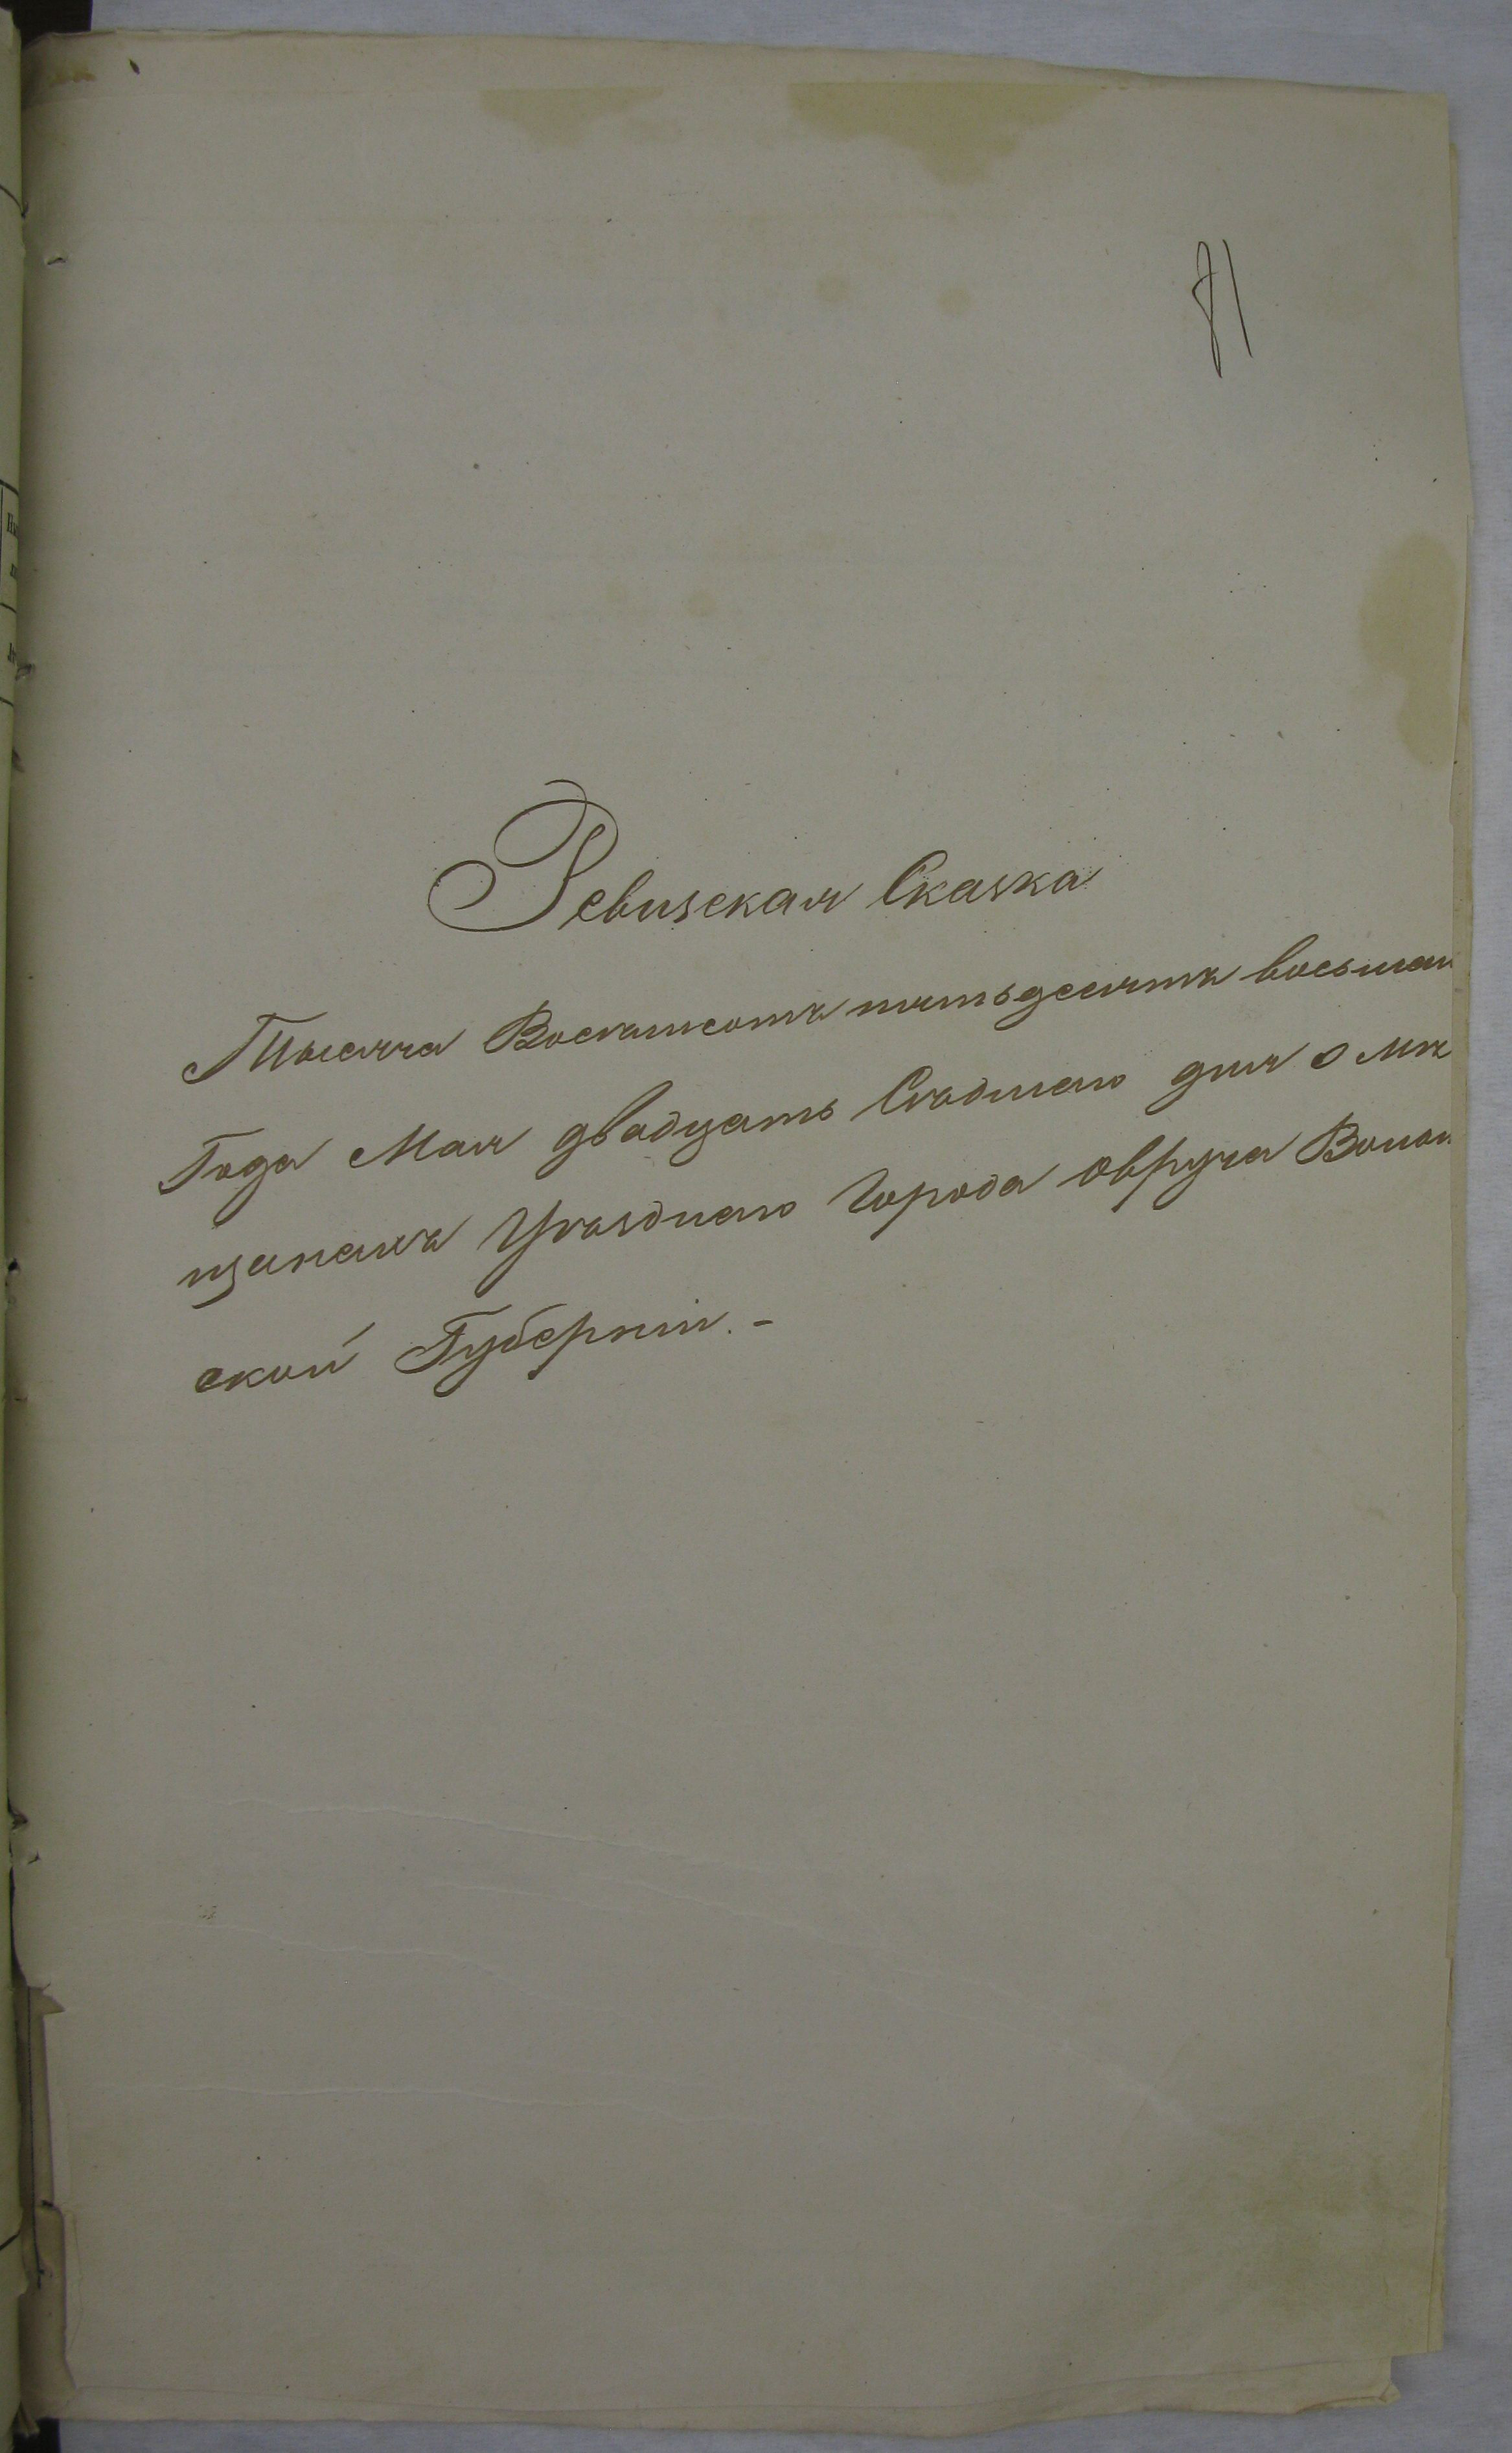 71
Ревизская Сказка
Тысяча Восемьсотъ пятьдесятъ восьма
Года Мая двадцать Седьмаго дня о мѣ
щанахъ Уѣзднаго Города Овруча Волын
ской Губерніи. -